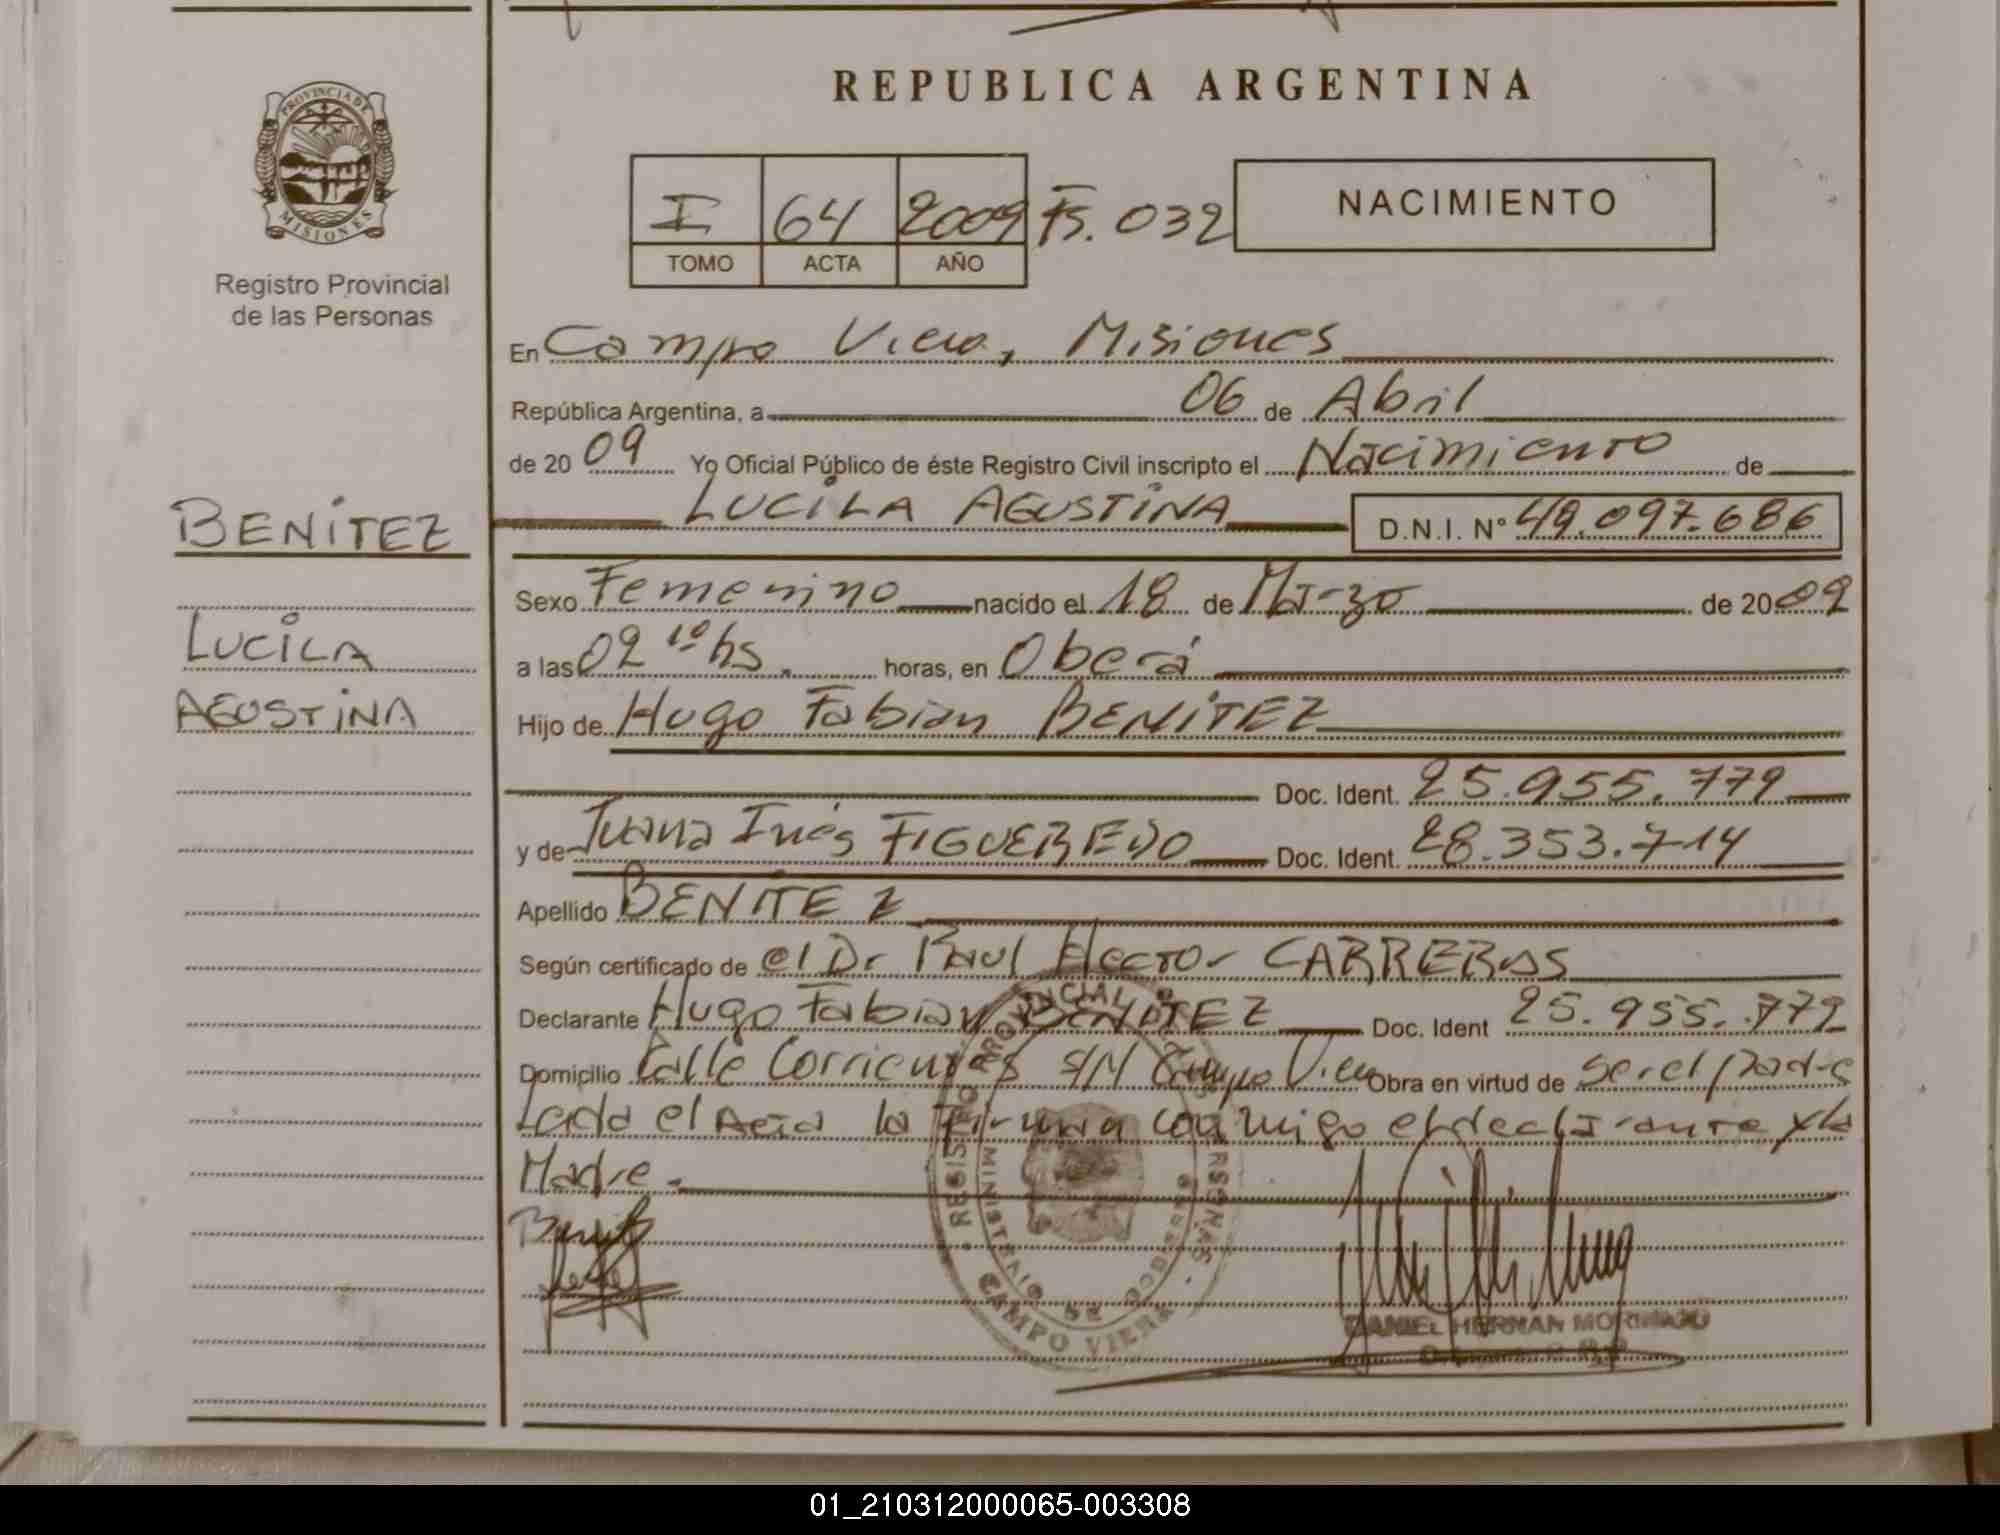 REPUBLICA ARGENTINA
PROVINCIA DE
MISIONES
Registro Provincial
de las Personas
I 64 2009 Fs. 032
TOMO ACTA AÑO
NACIMIENTO
En Campo Viera, Misiones
República Argentina, a 06 de Abril
de 20 09 Yo Oficial Público de éste Registro Civil inscripto el Nacimiento de
LUCILA AGUSTINA D.N.I. N° 49.097.686
BENITEZ
LUCILA
AGUSTINA
Sexo Femenino nacido el 18 de Marzo de 20 09
a las 02 10 hs. horas, en Oberá
Hijo de Hugo Fabian BENITEZ
Doc. Ident. 25.955.779
y de Juana Inés FIGUEREDO Doc. Ident. 28.353.714
Apellido BENITEZ
Según certificado de el Dr Raul Hector CARRERAS
Declarante Hugo Fabian BENITEZ Doc. Ident 25.955.779
Domicilio Calle Corrientes S/N Campo Viera Obra en virtud de ser el padre
Leida el Acta la Firman conmigo el declarante y la
Madre.
REGISTRO PROVINCIAL PERSONAS
MINISTERIO DE GOBIERNO
CAMPO VIERA
DANIEL HERNAN
01_210312000065-003308